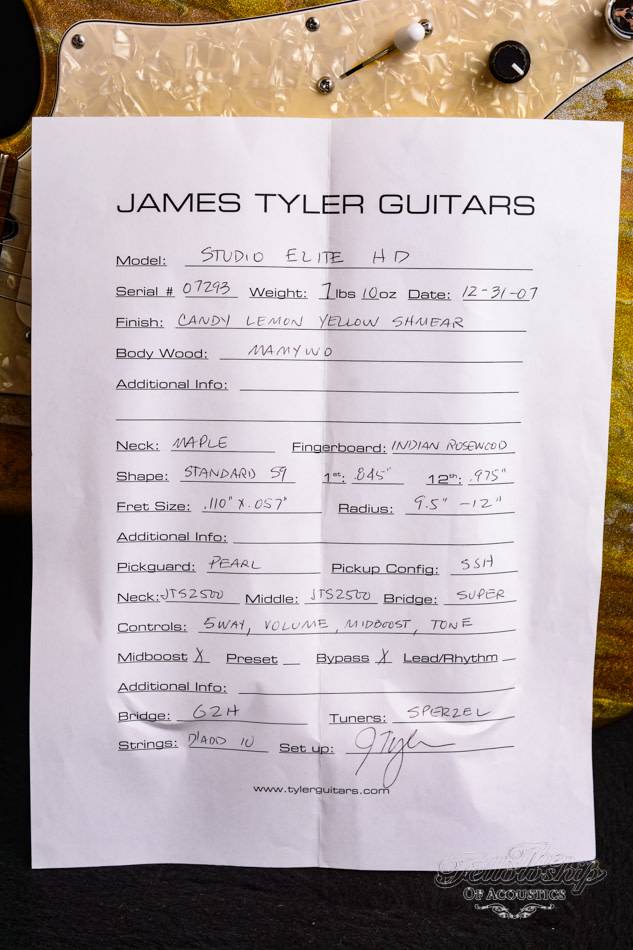 JAMES TYLER GUITARS
Model: STUDIO ELITE HD
Serial # 07293 Weight: 7 lbs 10 oz Date: 12-31-07
Finish: CANDY LEMON YELLOW SHMEAR
Body Wood: MAMYWO
Additional Info:
Neck: MAPLE Fingerboard: INDIAN ROSEWOOD
Shape: STANDARD 59 1st: .845" 12th: .975"
Fret Size: .110" X .057" Radius: 9.5" - 12"
Additional Info:
Pickguard: PEARL Pickup Config: SSH
Neck: JTS2500 Middle: JTS2500 Bridge: SUPER
Controls: 5WAY, VOLUME, MIDBOOST, TONE
Midboost X Preset Bypass X Lead/Rhythm
Additional Info:
Bridge: G2H Tuners: SPERZEL
Strings: D'ADD 10 Set up: JTyler
www.tylerguitars.com
The
Fellowship
OF ACOUSTICS